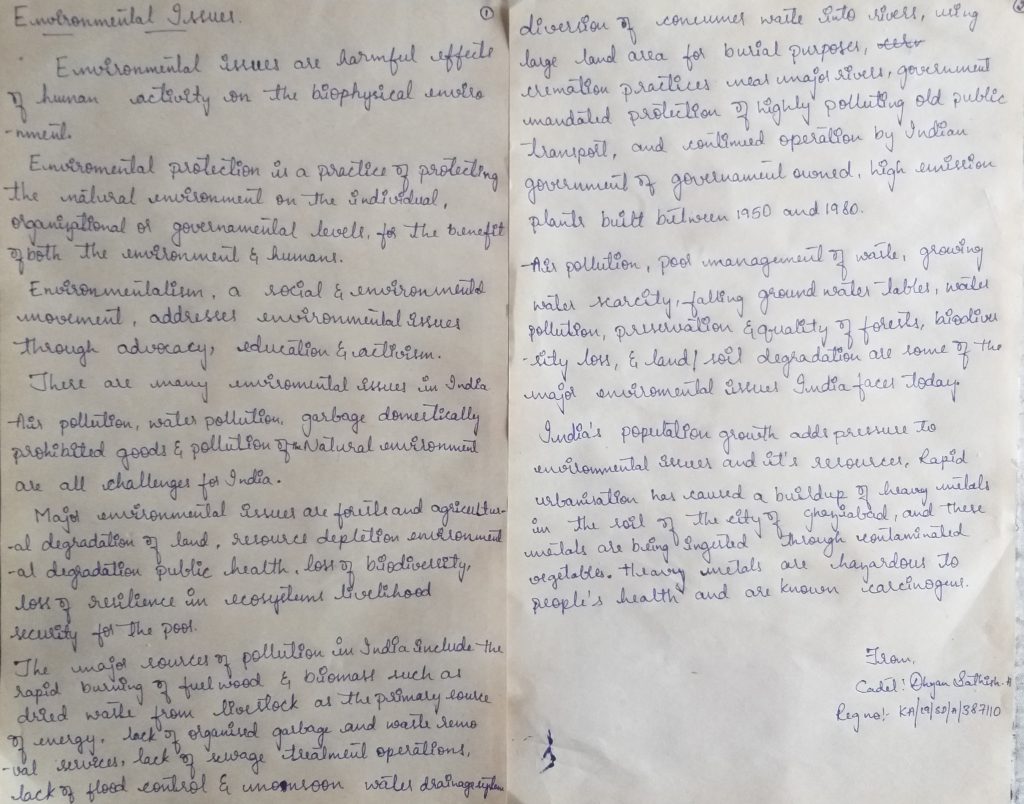 Environmental Issues.
①
Environmental issues are harmful effects
of human activity on the biophysical enviro
-nment.
Enviromental protection is a practice of protecting
the natural environment on the individual,
organizational or governamental levels, for the benefit
of both the environment & humans.
Environmentalism, a social & environmental
movement, addresses environmental issues
through advocacy, education & activism.
There are many enviromental issues in India
Air pollution, water pollution, garbage domestically
prohibited goods & pollution of the Natural environment
are all challenges for India.
Major environmental issues are forests and agricultur-
-al degradation of land, resource depletion environment
-al degradation public health, loss of biodiversity,
loss of resilience in ecosystems livelihood
security for the poor.
The major sources of pollution in India include the
rapid burning of fuel wood & biomass such as
dried waste from livestock as the primary source
of energy, lack of organised garbage and waste remo
-val services, lack of sewage treatment operations,
lack of flood control & monsoon water drainage system
②
diversion of consumer waste into rivers, using
large land area for burial purposes,
cremation practices near major rivers, government
mandated protection of highly polluting old public
transport, and continued operation by Indian
government of governament owned, high emission
plants built between 1950 and 1980.
Air pollution, poor management of waste, growing
water scarcity, falling ground water tables, water
pollution, preservation & quality of forests, biodiver
-sity loss, & land/soil degradation are some of the
major enviromental issues India faces today.
India's population growth adds pressure to
environmental issues and it's resources, Rapid
urbanisation has caused a buildup of heavy metals
in the soil of the city of ghaziabad, and these
metals are being ingested through contaminated
vegetables. Heavy metals are hazardous to
people's health and are known carcinogens.
From,
Cadet: Dhyan Sathish.
Regno:- KA/19/SD/A/387110